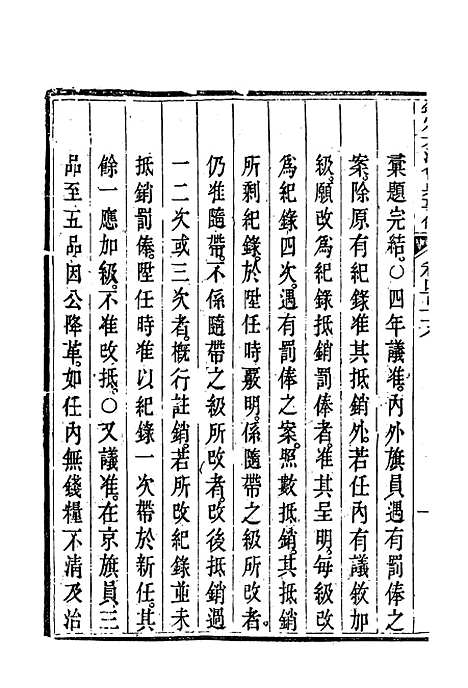 彙題完結。○四年議准。內外旗員遇有罰俸之
案。除原有紀錄准其抵銷外。若任內有議敘加
級。願改為紀錄抵銷罰俸者。准其呈明。每級改
為紀錄四次。遇有罰俸之案。照數抵銷。其抵銷
所剩紀錄。於陞任時覈明。係隨帶之級所改者。
仍准隨帶。不係隨帶之級所改者。改後抵銷過
一二次或三次者。概行註銷。若所改紀錄並未
抵銷罰俸。陞任時准以紀錄一次帶於新任。其
餘一應加級。不准改抵。○又議准。在京旗員。三
品至五品因公降革。如任內無錢糧不清及治